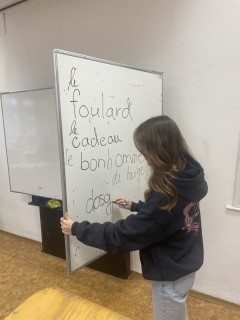 le
foulard
le
cadeau
le bonhomme
de neige
dosg